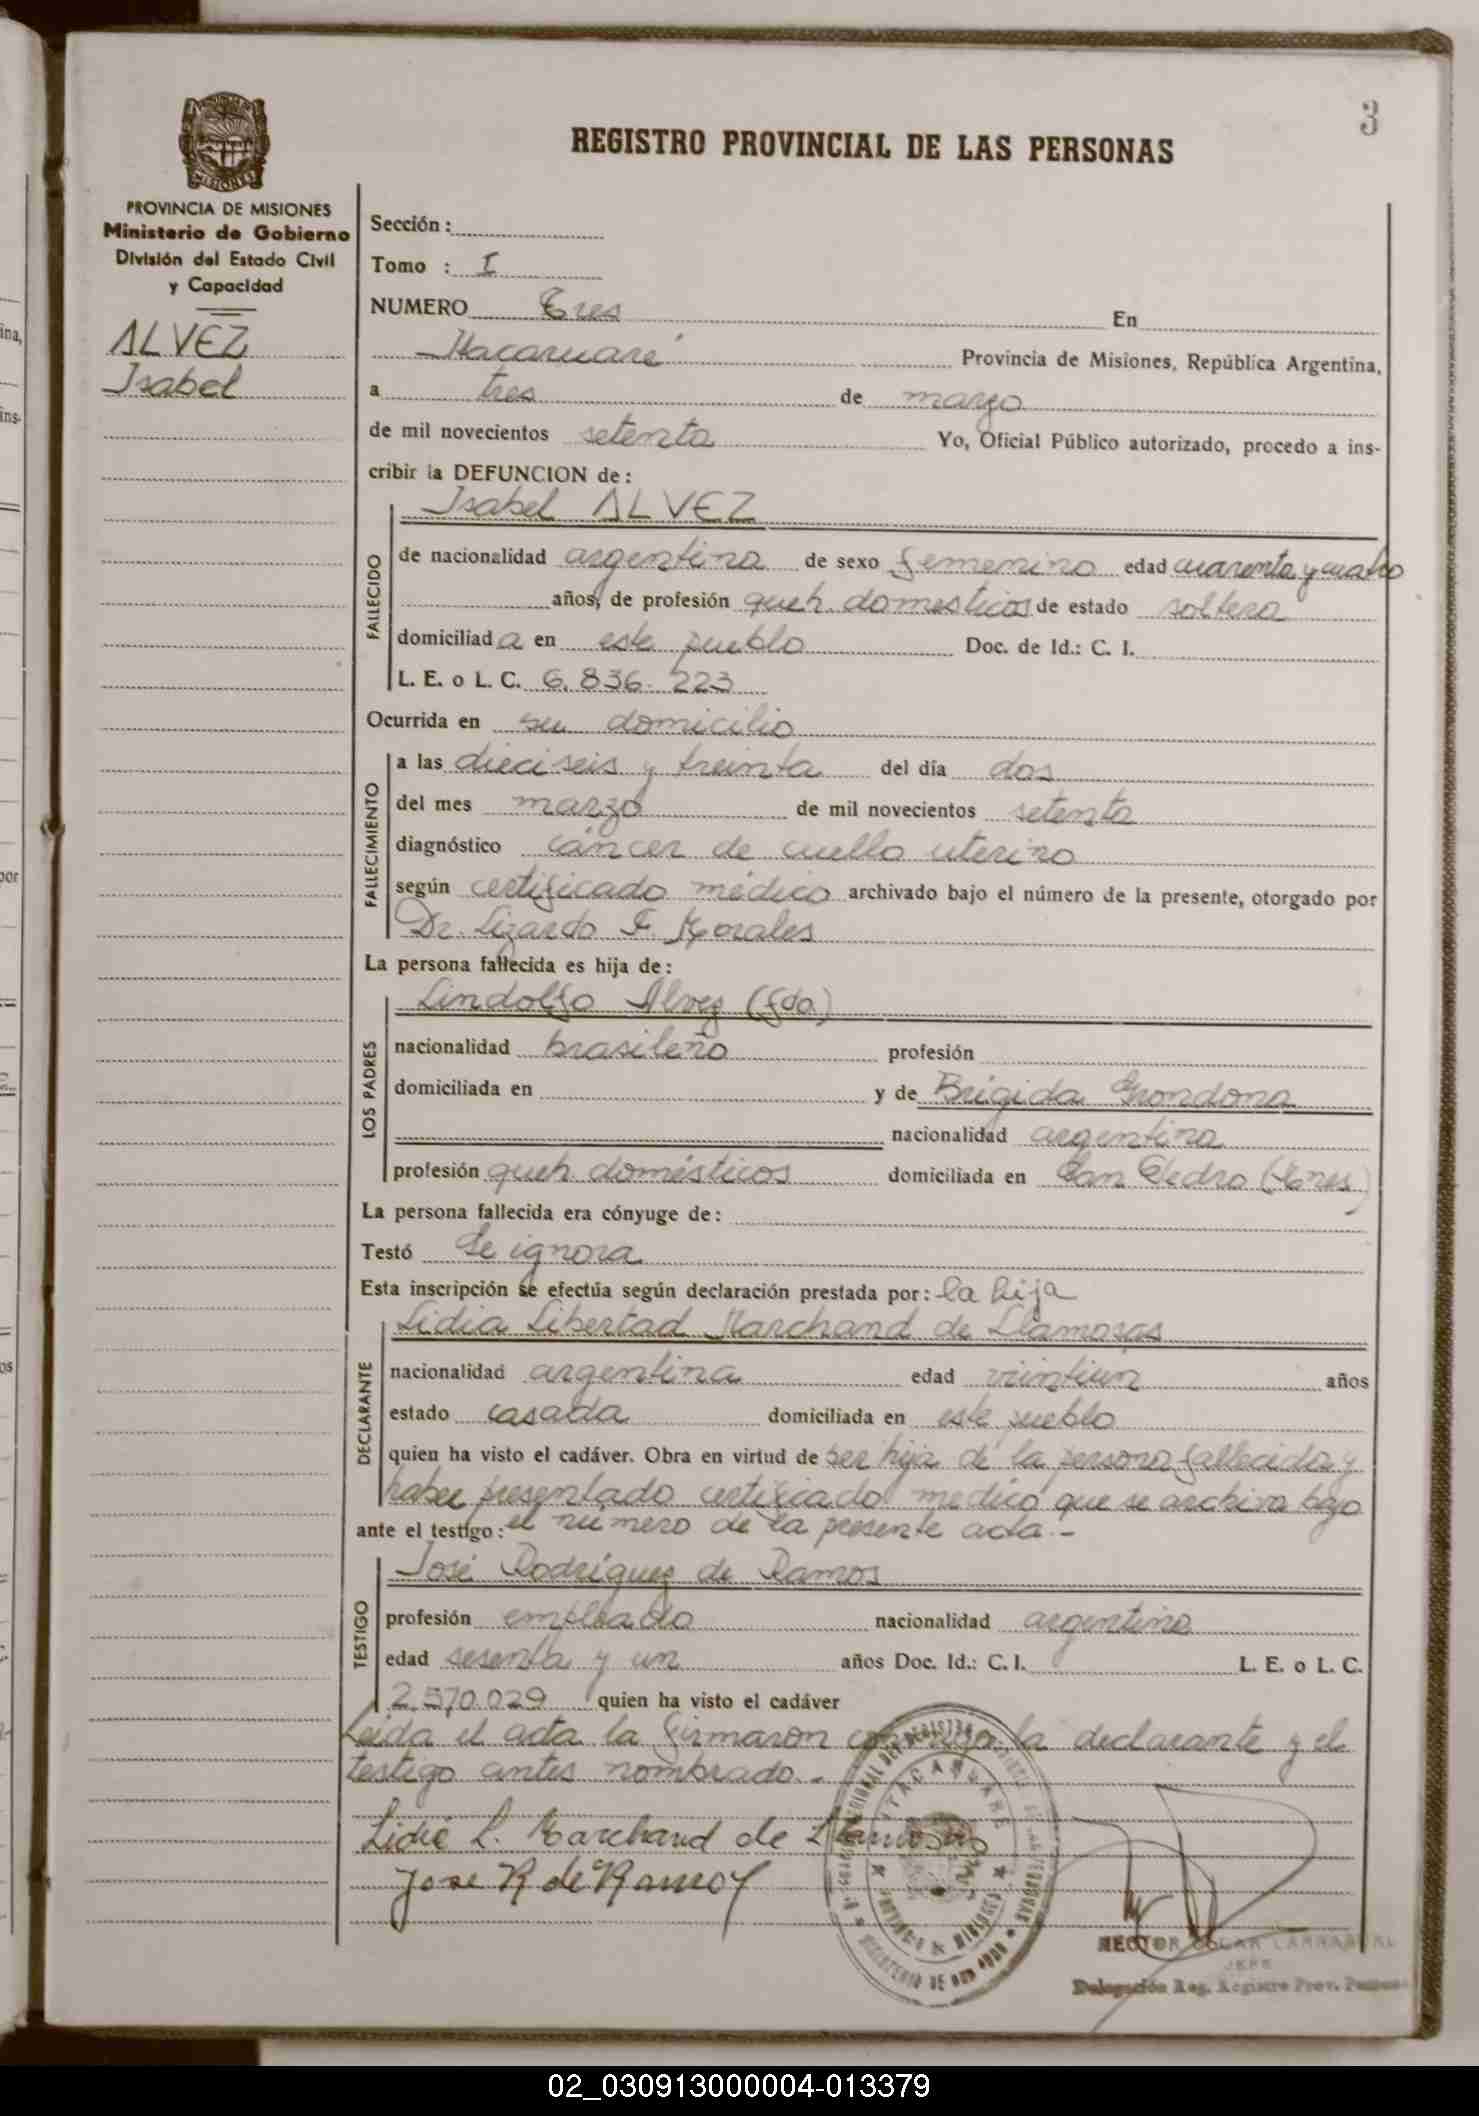 3
REGISTRO PROVINCIAL DE LAS PERSONAS
MISIONES
PROVINCIA DE MISIONES
Ministerio de Gobierno
División del Estado Civil
y Capacidad
ALVEZ
Isabel
Sección:
Tomo : I
NUMERO Tres En
Itacaruaré Provincia de Misiones, República Argentina,
a tres de marzo
de mil novecientos setenta Yo, Oficial Público autorizado, procedo a ins-
cribir la DEFUNCION de:
Isabel ALVEZ
FALLECIDO
de nacionalidad argentina de sexo femenino edad cuarenta y cuatro
años, de profesión queh. domesticos de estado soltera
domiciliada en este pueblo Doc. de Id.: C. I.
L. E. o L. C. 6.836.223
Ocurrida en su domicilio
FALLECIMIENTO
a las dieciseis y treinta del día dos
del mes marzo de mil novecientos setenta
diagnóstico cáncer de cuello uterino
según certificado médico archivado bajo el número de la presente, otorgado por
Dr. Lizardo F. Morales
La persona fallecida es hija de:
LOS PADRES
Lindolfo Alvez (fdo)
nacionalidad brasileño profesión
domiciliada en y de Brígida Grondona
nacionalidad argentina
profesión queh domésticos domiciliada en San Pedro (Mnes)
La persona fallecida era cónyuge de:
Testó Se ignora
Esta inscripción se efectúa según declaración prestada por: la hija
DECLARANTE
Lidia Libertad Marchand de Llamosas
nacionalidad argentina edad veintiun años
estado casada domiciliada en este pueblo
quien ha visto el cadáver. Obra en virtud de ser hija de la persona fallecida y
haber presentado certificado medico que se archiva bajo
ante el testigo: el número de la presente acta.-
TESTIGO
José Rodríguez de Ramos
profesión empleado nacionalidad argentina
edad sesenta y un años Doc. Id.: C. I. L. E. o L. C.
2.570.029 quien ha visto el cadáver
Leida el acta la firmaron conmigo la declarante y el
testigo antes nombrado.-
Lidia L. Marchand de Llamosas
Jose R de Ramos
ITACARUARE
PROVINCIA DE MISIONES
HECTOR OSCAR
JEFE
Delegación Reg. Registro Prov. Personas
02_030913000004-013379